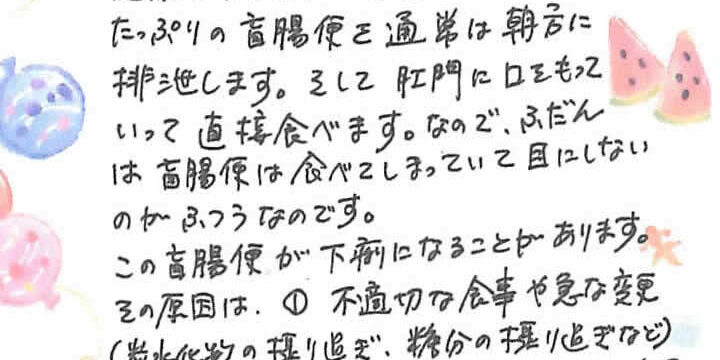 たっぷりの盲腸便を通常は朝方に
排泄します。そして肛門に口をもって
いって直接食べます。なので、ふだん
は盲腸便は食べてしまっていて目にしない
のがふつうなのです。
この盲腸便が下痢になることがあります。
その原因は、① 不適切な食事や急な変更
(炭水化物の摂り過ぎ、糖分の摂り過ぎなど)